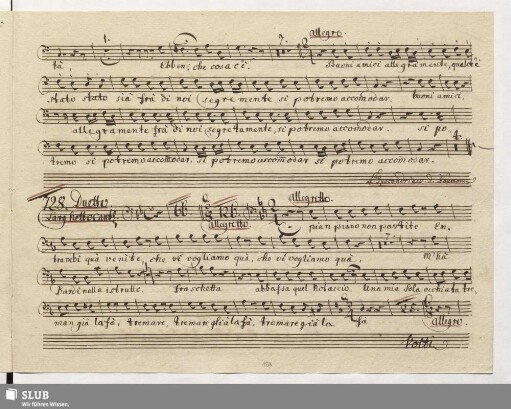 allegro.
1. 7.
Ebben: che cosa c'è. Buoni amici allegramente,
stato stato sia frà di noi segretamente si potremo accomodar. buoni amici.
allegramente frà di noi segretamente si potremo accomodar. si po
tremo si potremo accomodar. si potremo accomodar si potremo accomodar.
728. Duetto.
66 126. allegretto.
allegretto. pian piano non partite En
trambi quà venite, che vè vogliamo quà, che vè vogliamo quà, m'hà
istrutto. fraschetta abbassa quel Nolaccio. Una mia sola occhiata tre
man già la fà, tremare, tremare già la fà, tremare già la fà
allegro.
Volti
153
SLUB
Wir führen Wissen.